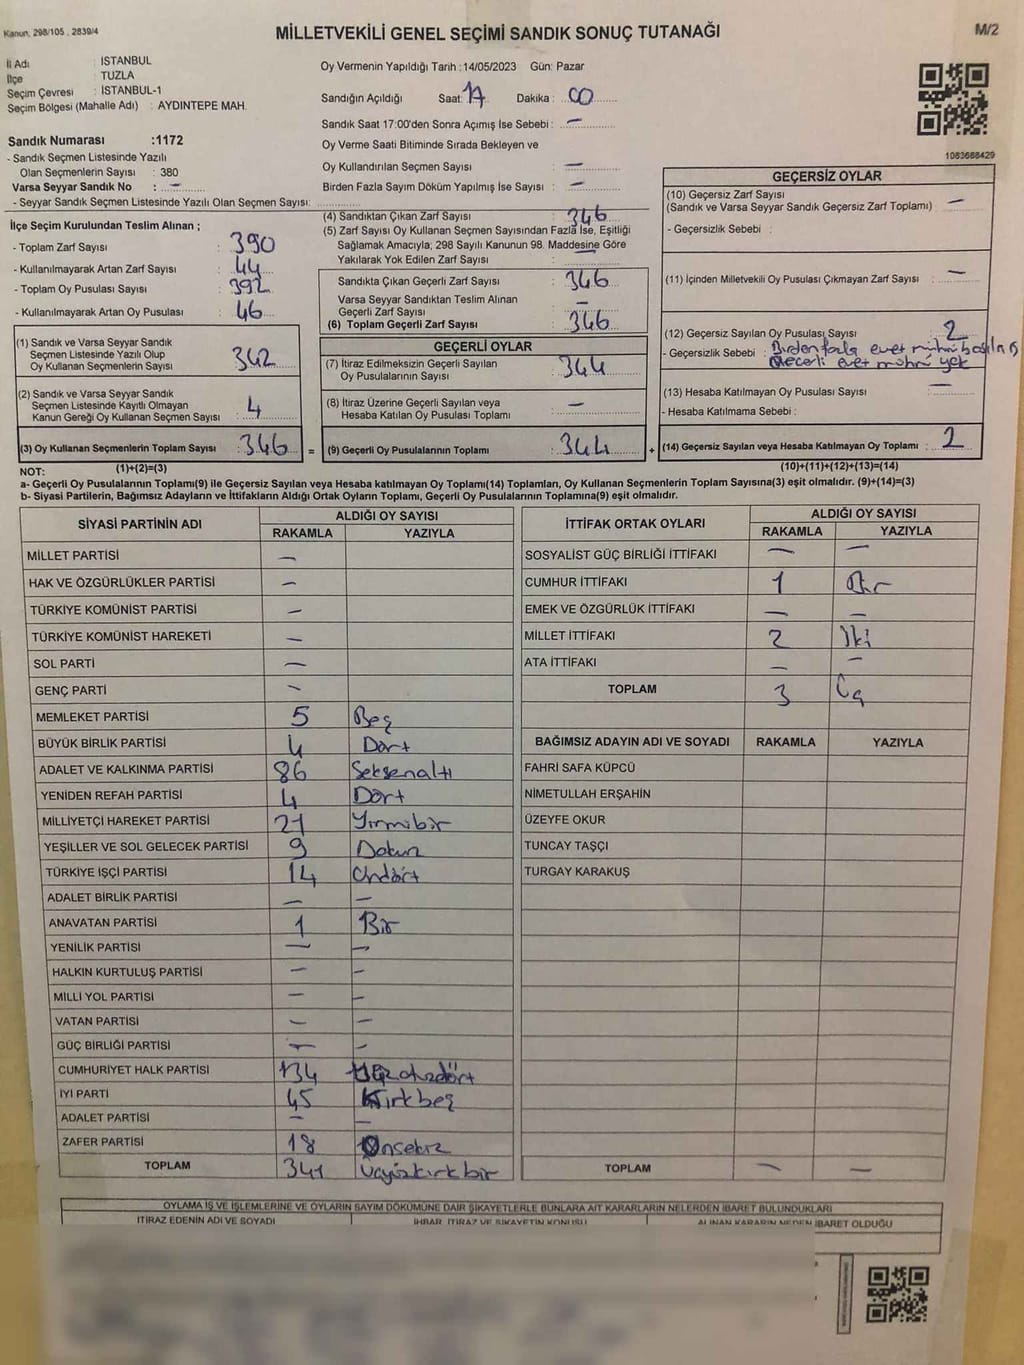 Kanun, 298/105 , 2839/4
MİLLETVEKİLİ GENEL SEÇİMİ SANDIK SONUÇ TUTANAĞI
M/2
İl Adı : İSTANBUL
İlçe : TUZLA
Seçim Çevresi : İSTANBUL-1
Seçim Bölgesi (Mahalle Adı) : AYDINTEPE MAH.
Sandık Numarası :1172
- Sandık Seçmen Listesinde Yazılı
Olan Seçmenlerin Sayısı : 380
Varsa Seyyar Sandık No : —
- Seyyar Sandık Seçmen Listesinde Yazılı Olan Seçmen Sayısı:
Oy Vermenin Yapıldığı Tarih :14/05/2023 Gün: Pazar
Sandığın Açıldığı Saat: 17 Dakika : 00
Sandık Saat 17:00'den Sonra Açımış İse Sebebi : —
Oy Verme Saati Bitiminde Sırada Bekleyen ve
Oy Kullandırılan Seçmen Sayısı : —
Birden Fazla Sayım Döküm Yapılmış İse Sayısı : —
1083668429
İlçe Seçim Kurulundan Teslim Alınan ;
- Toplam Zarf Sayısı : 390
- Kullanılmayarak Artan Zarf Sayısı : 44
- Toplam Oy Pusulası Sayısı : 392
- Kullanılmayarak Artan Oy Pusulası : 46
(1) Sandık ve Varsa Seyyar Sandık
Seçmen Listesinde Yazılı Olup
Oy Kullanan Seçmenlerin Sayısı : 342
(2) Sandık ve Varsa Seyyar Sandık
Seçmen Listesinde Kayıtlı Olmayan
Kanun Gereği Oy Kullanan Seçmen Sayısı : 4
(3) Oy Kullanan Seçmenlerin Toplam Sayısı : 346
(4) Sandıktan Çıkan Zarf Sayısı : 346
(5) Zarf Sayısı Oy Kullanan Seçmen Sayısından Fazla İse, Eşitliği
Sağlamak Amacıyla; 298 Sayılı Kanunun 98. Maddesine Göre
Yakılarak Yok Edilen Zarf Sayısı : —
Sandıkta Çıkan Geçerli Zarf Sayısı : 346
Varsa Seyyar Sandıktan Teslim Alınan
Geçerli Zarf Sayısı : —
(6) Toplam Geçerli Zarf Sayısı : 346
GEÇERLİ OYLAR
(7) İtiraz Edilmeksizin Geçerli Sayılan
Oy Pusulalarının Sayısı : 344
(8) İtiraz Üzerine Geçerli Sayılan veya
Hesaba Katılan Oy Pusulası Toplamı : —
= (9) Geçerli Oy Pusulalarının Toplamı : 344
GEÇERSİZ OYLAR
(10) Geçersiz Zarf Sayısı
(Sandık ve Varsa Seyyar Sandık Geçersiz Zarf Toplamı) : —
- Geçersizlik Sebebi :
(11) İçinden Milletvekili Oy Pusulası Çıkmayan Zarf Sayısı : —
(12) Geçersiz Sayılan Oy Pusulası Sayısı : 2
- Geçersizlik Sebebi : Birden fazla evet mührü basılmış
evet mührü yok
(13) Hesaba Katılmayan Oy Pusulası Sayısı : —
- Hesaba Katılmama Sebebi :
+ (14) Geçersiz Sayılan veya Hesaba Katılmayan Oy Toplamı : 2
NOT: (1)+(2)=(3)
(10)+(11)+(12)+(13)=(14)
a- Geçerli Oy Pusulalarının Toplamı(9) ile Geçersiz Sayılan veya Hesaba katılmayan Oy Toplamı(14) Toplamları, Oy Kullanan Seçmenlerin Toplam Sayısına(3) eşit olmalıdır. (9)+(14)=(3)
b- Siyasi Partilerin, Bağımsız Adayların ve İttifakların Aldığı Ortak Oyların Toplamı, Geçerli Oy Pusulalarının Toplamına(9) eşit olmalıdır.
SİYASİ PARTİNİN ADI
ALDIĞI OY SAYISI
RAKAMLA YAZIYLA
MİLLET PARTİSİ —
HAK VE ÖZGÜRLÜKLER PARTİSİ —
TÜRKİYE KOMÜNİST PARTİSİ —
TÜRKİYE KOMÜNİST HAREKETİ —
SOL PARTİ —
GENÇ PARTİ —
MEMLEKET PARTİSİ 5 Beş
BÜYÜK BİRLİK PARTİSİ 4 Dört
ADALET VE KALKINMA PARTİSİ 86 Seksenaltı
YENİDEN REFAH PARTİSİ 4 Dört
MİLLİYETÇİ HAREKET PARTİSİ 21 Yirmibir
YEŞİLLER VE SOL GELECEK PARTİSİ 9 Dokuz
TÜRKİYE İŞÇİ PARTİSİ 14 Ondört
ADALET BİRLİK PARTİSİ — —
ANAVATAN PARTİSİ 1 Bir
YENİLİK PARTİSİ — —
HALKIN KURTULUŞ PARTİSİ — —
MİLLİ YOL PARTİSİ — —
VATAN PARTİSİ — —
GÜÇ BİRLİĞİ PARTİSİ — —
CUMHURİYET HALK PARTİSİ 134 Yüzotuzdört
İYİ PARTİ 45 Kırkbeş
ADALET PARTİSİ — —
ZAFER PARTİSİ 18 Onsekiz
TOPLAM 341 Üçyüzkırkbir
İTTİFAK ORTAK OYLARI
ALDIĞI OY SAYISI
RAKAMLA YAZIYLA
SOSYALİST GÜÇ BİRLİĞİ İTTİFAKI — —
CUMHUR İTTİFAKI 1 Bir
EMEK VE ÖZGÜRLÜK İTTİFAKI — —
MİLLET İTTİFAKI 2 İki
ATA İTTİFAKI — —
TOPLAM 3 Üç
BAĞIMSIZ ADAYIN ADI VE SOYADI RAKAMLA YAZIYLA
FAHRİ SAFA KÜPCÜ
NİMETULLAH ERŞAHİN
ÜZEYFE OKUR
TUNCAY TAŞÇI
TURGAY KARAKUŞ
TOPLAM — —
OYLAMA İŞ VE İŞLEMLERİNE VE OYLARIN SAYIM DÖKÜMÜNE DAİR ŞİKAYETLERLE BUNLARA AİT KARARLARIN NELERDEN İBARET BULUNDUKLARI
İTİRAZ EDENİN ADI VE SOYADI İHBAR, İTİRAZ VE ŞİKAYETİN KONUSU ALINAN KARARIN NEDEN İBARET OLDUĞU